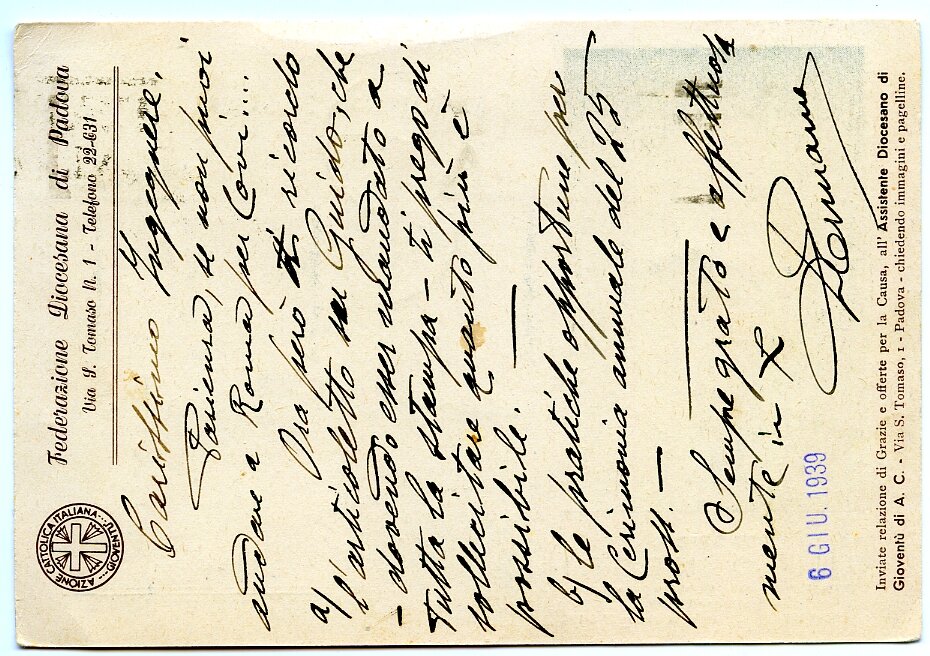 AZIONE CATTOLICA ITALIANA · GIOVENTÙ
Federazione Diocesana di Padova
Via S. Tomaso N. 1 - Telefono 22-631
Carissimo Ingegnere,
Pazienza, se non puoi
andare a Roma per Covi....
Ora però ti ricordo
a) l'articoletto su Guido, che
- dovendo esser mandato a
tutta la stampa - ti prego di
sollecitare quanto più è
possibile. —
b) le pratiche opportune per
la Cerimonia annuale del 25
pross. —
Sempre grato e affettuosa
mente in X
6 GIU. 1939
Inviate relazione di Grazie e offerte per la Causa, all' Assistente Diocesano di
Gioventù di A. C. - Via S. Tomaso, 1 - Padova - chiedendo immagini e pagelline.